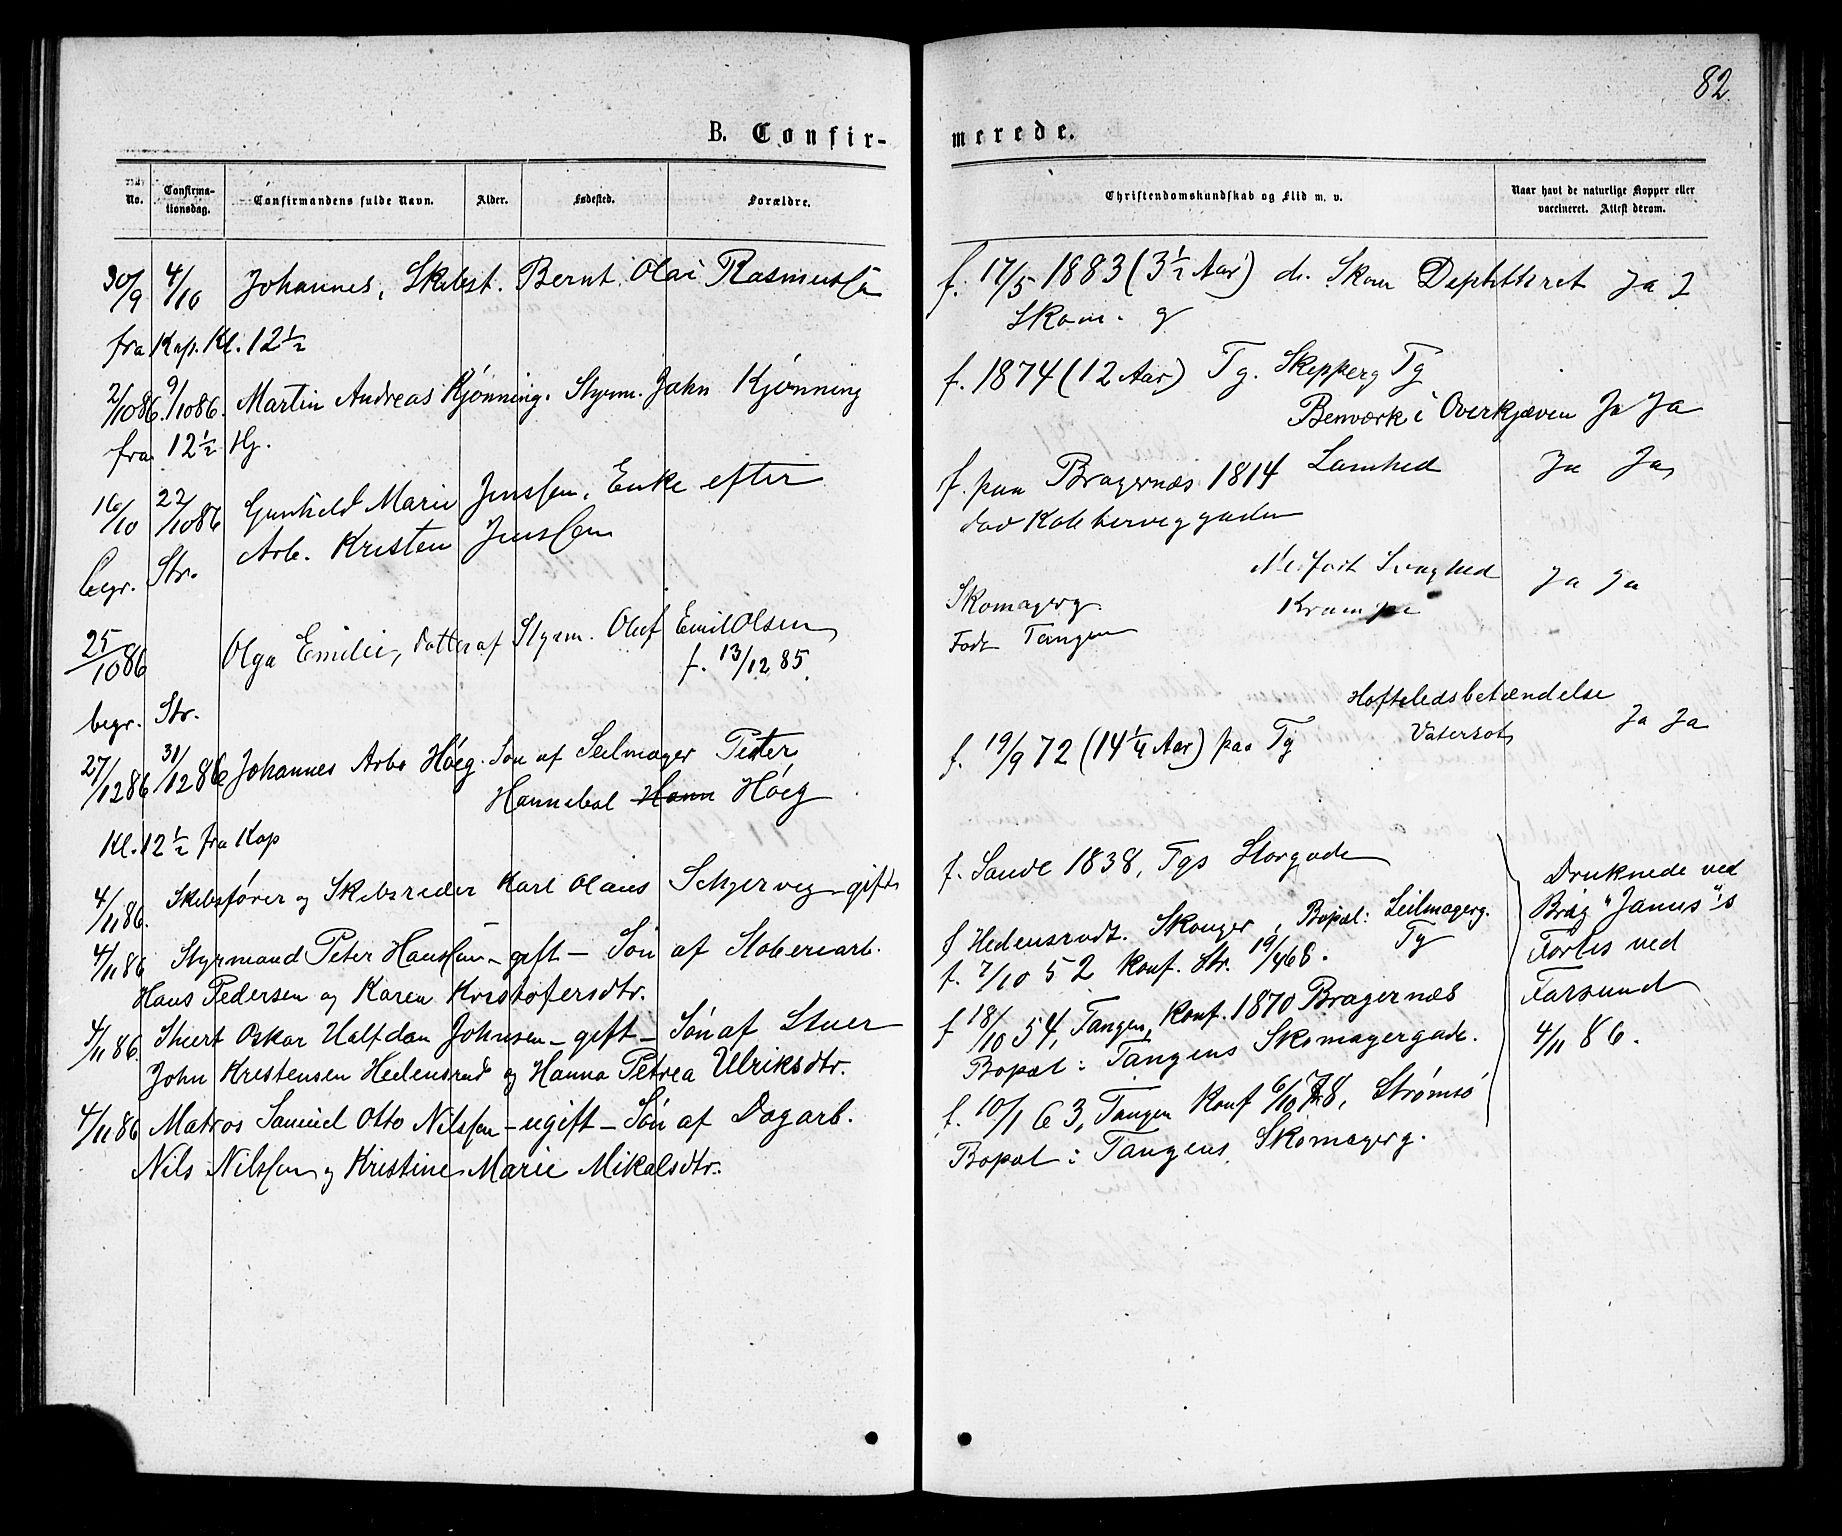 82.
B. Confir-
merede.
No.
Confirma-
tionsdag.
Confirmandens fulde Navn.
Alder.
Fødested.
Forældre.
Christendomskundskab og Flid m. v.
Naar havt de naturlige Kopper eller
vaccineret. Attest derom.
30/9 4/10 Johannes, Skibst. Bernt Olai Rasmussen
fra Kap. Kl. 12½
2/1086. 9/1086. Martin Andreas Kjønning. Styrm. John Kjønning
fra 12½ Hj.
16/10 22/1086 Gunhild Marie Jenssen, Enke efter
Arb. Kristen Jenssen
begr. Str.
25/1086 Olga Emilie, Datter af Styrm. Oluf Emil Olsen
f. 13/12 85.
begr. Str.
27/1286 31/1286 Johannes Arbo Höeg. Søn af Seilmager Peter
Hannibal Hann Höeg
Kl. 12½ fra Kap
4/11 86. Skibsfører og Skibsreder Karl Olaus Schjerveg - gift
4/11 86 Styrmand Peter Hanssen - gift - Sön af Stoberiarb.
Hans Pedersen og Karen Kristofersdtr.
4/11 86. Stuert Oskar Halfdan Johnsen - gift - Sön af Stuer
John Kristensen Hedensrud og Hanna Petrea Ulriksdtr.
4/11 86 Matros Samuel Otto Nilssen - ugift - Sön af Dagarb.
Nils Nilssen og Kristine Marie Mikalsdtr.
f. 17/5 1883 (3½ Aar) Skom Ja
Skom. g
f. 1874 (12 Aar) Tg. Skipperg Tg
Benværk i Overkjæven Ja Ja
f. paa Bragernæs 1814 Lamhed Ja Ja
Skomagerg. Krampe Ja Ja
Født Tangen
Hofteledsbetændelse
f. 19/9 72 (14¼ Aar) paa Tg Vatersot Ja Ja
f. Sande 1838, Tgs Storgade
f Hedensrudt. Skouger, Bopæl: Seilmagerg.
f. 7/10 52 Konf. Str. 19/4 68. Tg
f 18/10 54, Tangen, Konf. 1870 Bragernæs
Bopæl: Tangens Skomagergade.
f. 10/1 63, Tangen Konf 6/10 78, Strømsö
Bopæl: Tangens Skomagerg.
Druknede ved
Brig "Janus"'s
Forlis ved
Farsund
4/11 86.